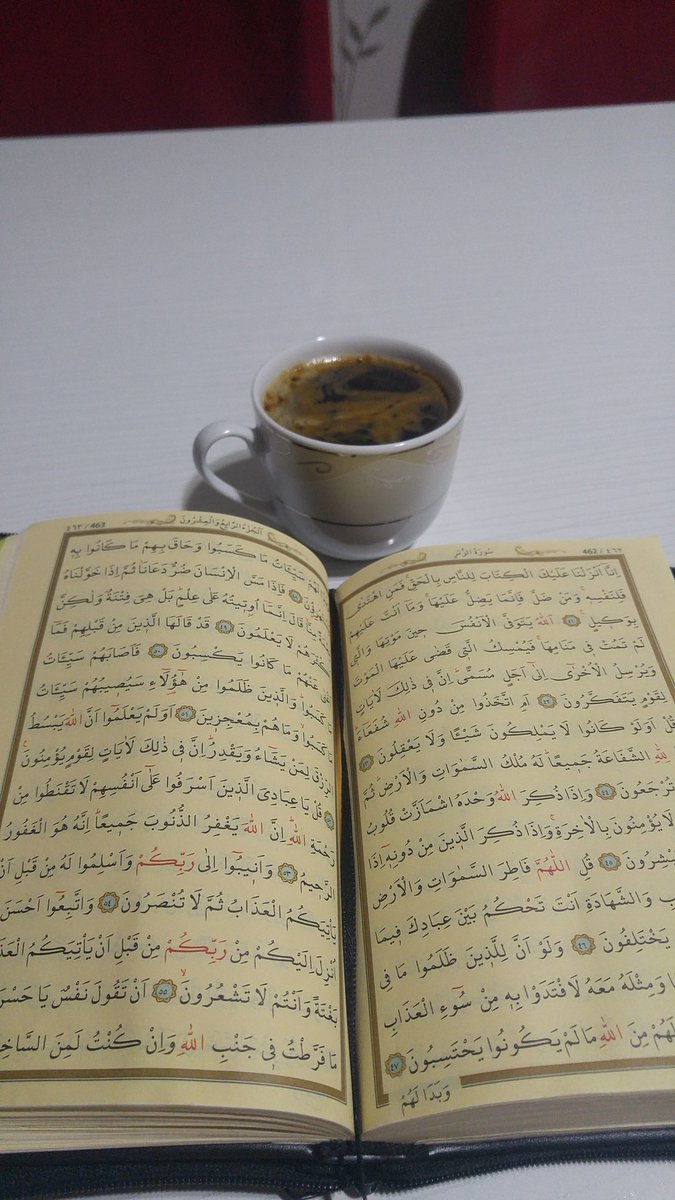 462 / ٤٦٢ سُورَةُ الزُّمَرِ
اِنَّٓا اَنْزَلْنَا عَلَيْكَ الْكِتَابَ لِلنَّاسِ بِالْحَقِّۚ فَمَنِ اهْتَدٰى
فَلِنَفْسِه۪ۚ وَمَنْ ضَلَّ فَاِنَّمَا يَضِلُّ عَلَيْهَاۚ وَمَٓا اَنْتَ عَلَيْهِمْ
بِوَك۪يلٍ ٤١ اَللّٰهُ يَتَوَفَّى الْاَنْفُسَ ح۪ينَ مَوْتِهَا وَالَّت۪ي
لَمْ تَمُتْ ف۪ي مَنَامِهَاۚ فَيُمْسِكُ الَّت۪ي قَضٰى عَلَيْهَا الْمَوْتَ
وَيُرْسِلُ الْاُخْرٰٓى اِلٰٓى اَجَلٍ مُسَمًّىۜ اِنَّ ف۪ي ذٰلِكَ لَاٰيَاتٍ
لِقَوْمٍ يَتَفَكَّرُونَ ٤٢ اَمِ اتَّخَذُوا مِنْ دُونِ اللّٰهِ شُفَعَٓاءَۜ
قُلْ اَوَلَوْ كَانُوا لَا يَمْلِكُونَ شَيْـًٔا وَلَا يَعْقِلُونَ ٤٣
لِلّٰهِ الشَّفَاعَةُ جَم۪يعًاۜ لَهُ مُلْكُ السَّمٰوَاتِ وَالْاَرْضِۜ ثُمَّ
تُرْجَعُونَ ٤٤ وَاِذَا ذُكِرَ اللّٰهُ وَحْدَهُ اشْمَاَزَّتْ قُلُوبُ
لَا يُؤْمِنُونَ بِالْاٰخِرَةِۚ وَاِذَا ذُكِرَ الَّذ۪ينَ مِنْ دُونِه۪ٓ اِذَا
يَسْتَبْشِرُونَ ٤٥ قُلِ اللّٰهُمَّ فَاطِرَ السَّمٰوَاتِ وَالْاَرْضِ
وَالشَّهَادَةِ اَنْتَ تَحْكُمُ بَيْنَ عِبَادِكَ ف۪يمَا
يَخْتَلِفُونَ ٤٦ وَلَوْ اَنَّ لِلَّذ۪ينَ ظَلَمُوا مَا فِي
وَمِثْلَهُ مَعَهُ لَافْتَدَوْا بِه۪ مِنْ سُٓوءِ الْعَذَابِ
لَهُمْ مِنَ اللّٰهِ مَا لَمْ يَكُونُوا يَحْتَسِبُونَ ٤٧
وَبَدَا لَهُمْ
اَلْجُزْءُ الرَّابِعُ وَالْعِشْرُونَ ٤٦٣ / 463
لَهُمْ سَيِّـَٔاتُ مَا كَسَبُوا وَحَاقَ بِهِمْ مَا كَانُوا بِه۪
فَاِذَا مَسَّ الْاِنْسَانَ ضُرٌّ دَعَانَاۘ ثُمَّ اِذَا خَوَّلْنَاهُ
قَالَ اِنَّمَٓا اُو۫ت۪يتُهُ عَلٰى عِلْمٍۜ بَلْ هِيَ فِتْنَةٌ وَلٰكِنَّ
اَكْثَرَهُمْ لَا يَعْلَمُونَ ٤٩ قَدْ قَالَهَا الَّذ۪ينَ مِنْ قَبْلِهِمْ فَمَٓا
عَنْهُمْ مَا كَانُوا يَكْسِبُونَ ٥٠ فَاَصَابَهُمْ سَيِّـَٔاتُ
مَا كَسَبُواۜ وَالَّذ۪ينَ ظَلَمُوا مِنْ هٰٓؤُ۬لَٓاءِ سَيُص۪يبُهُمْ سَيِّـَٔاتُ
مَا كَسَبُواۙ وَمَا هُمْ بِمُعْجِز۪ينَ ٥١ اَوَلَمْ يَعْلَمُٓوا اَنَّ اللّٰهَ يَبْسُطُ
الرِّزْقَ لِمَنْ يَشَٓاءُ وَيَقْدِرُۜ اِنَّ ف۪ي ذٰلِكَ لَاٰيَاتٍ لِقَوْمٍ يُؤْمِنُونَ
قُلْ يَا عِبَادِيَ الَّذ۪ينَ اَسْرَفُوا عَلٰٓى اَنْفُسِهِمْ لَا تَقْنَطُوا مِنْ
رَحْمَةِ اللّٰهِۜ اِنَّ اللّٰهَ يَغْفِرُ الذُّنُوبَ جَم۪يعًاۜ اِنَّهُ هُوَ الْغَفُورُ
الرَّح۪يمُ ٥٣ وَاَن۪يبُٓوا اِلٰى رَبِّكُمْ وَاَسْلِمُوا لَهُ مِنْ قَبْلِ اَنْ
يَأْتِيَكُمُ الْعَذَابُ ثُمَّ لَا تُنْصَرُونَ ٥٤ وَاتَّبِعُٓوا اَحْسَنَ
اُنْزِلَ اِلَيْكُمْ مِنْ رَبِّكُمْ مِنْ قَبْلِ اَنْ يَأْتِيَكُمُ
بَغْتَةً وَاَنْتُمْ لَا تَشْعُرُونَۙ ٥٥ اَنْ تَقُولَ نَفْسٌ يَا
مَا فَرَّطْتُ ف۪ي جَنْبِ اللّٰهِ وَاِنْ كُنْتُ لَمِنَ